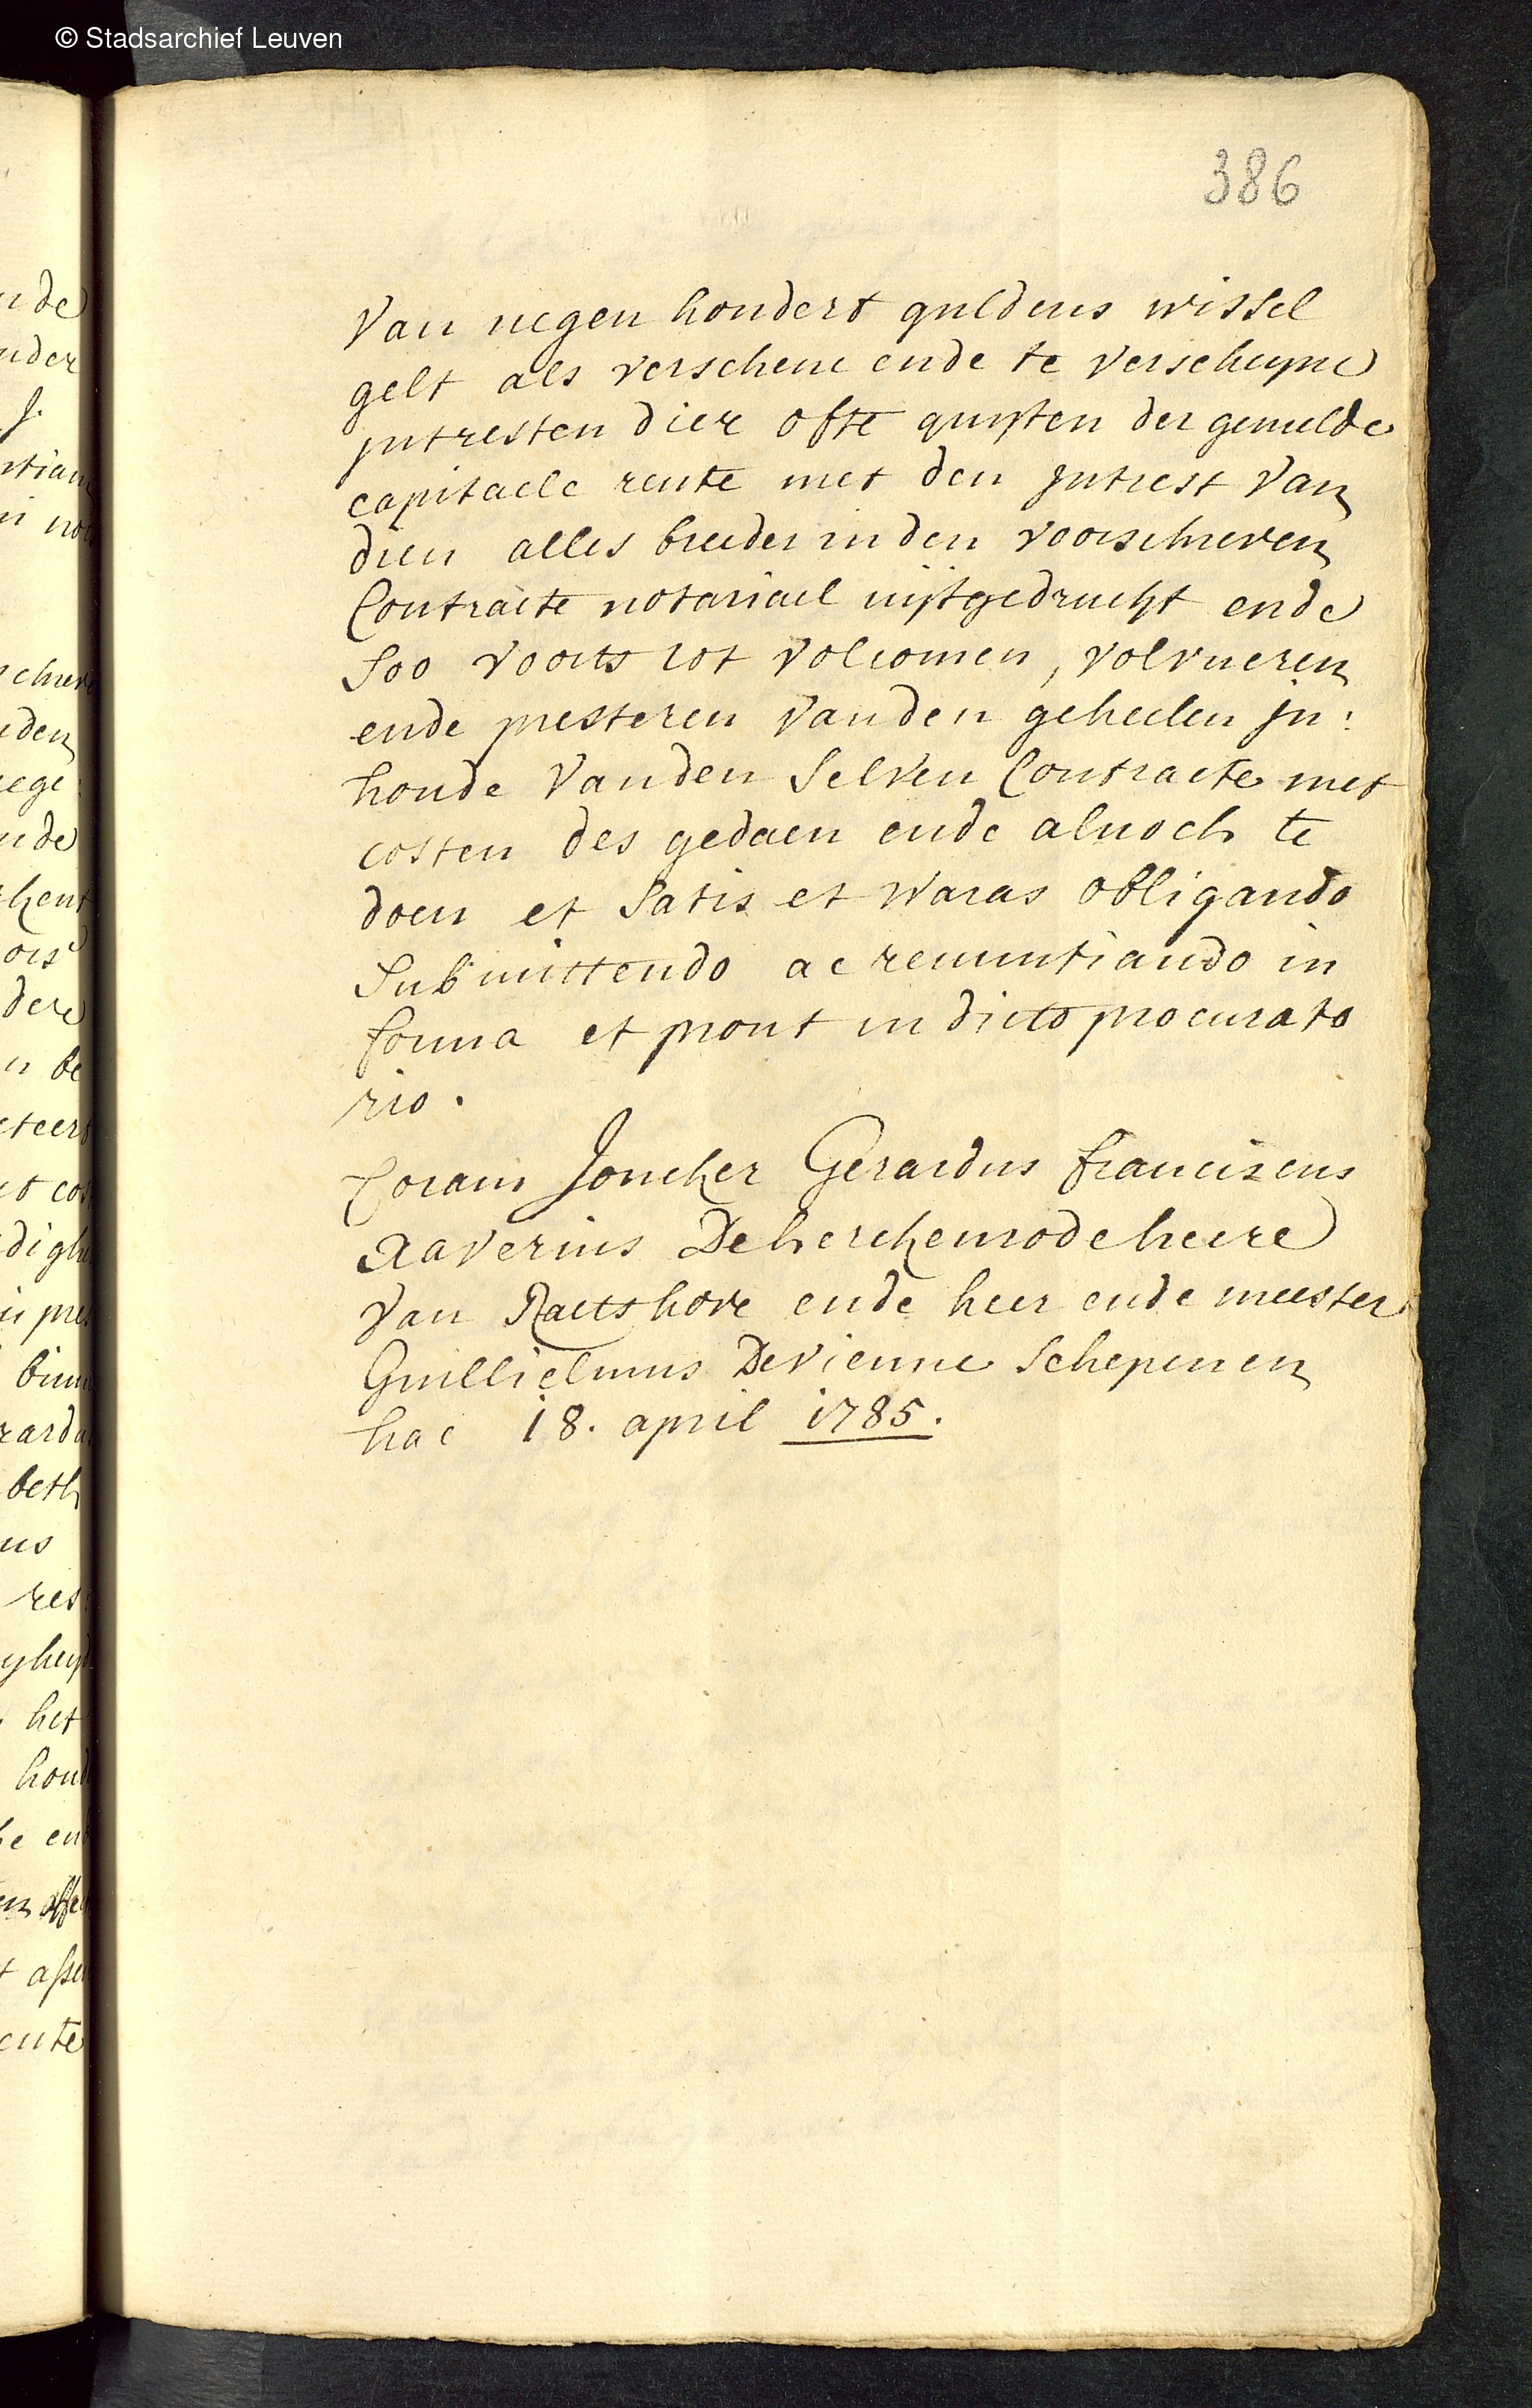 © Stadsarchief Leuven
386
van negen hondert guldens wissel
gelt als verschene ende te verscheyne
jntresten dier ofte quyten der gemelde
capitaele rente met den jntrest van
dien alles breeder in den voorschreven
Contracte notariael uijtgedruckt ende
soo voorts tot volcomen, volvueren
ende presteren van den geheelen jn:
houde van den selven Contracte met
costen des gedaen ende alnoch te
doen et satis et waras obligando
submittendo ac renuntiando in
forma et prout in dicto procurato
rio.
Coram Joncker Gerardus franciscus
xaverius De herckenrode heere
van Raetshove ende heer ende meester
Guillielmus De vienne schepenen
hac 18. april 1785.
nde
nder
s.
ntiam
den
ege:
nde
dere
n be
beth
us
res:
het
ente